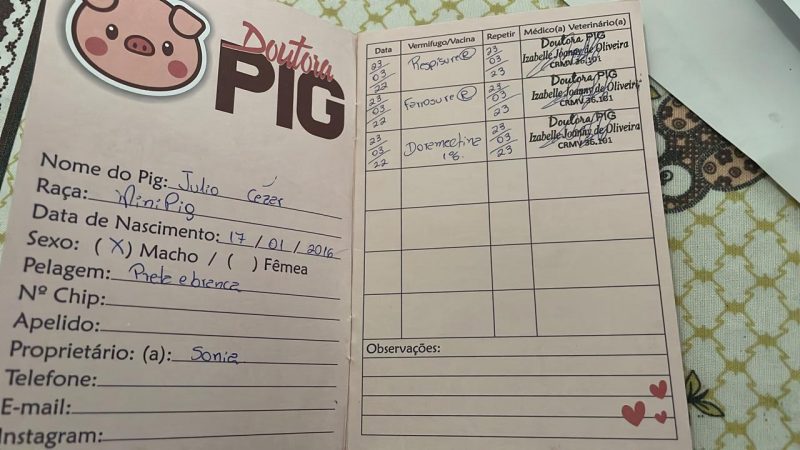 Doutora
PIG
Nome do Pig: Julio Cézer
Raça: MiniPig
Data de Nascimento: 17 / 01 / 2016
Sexo: ( X ) Macho / ( ) Fêmea
Pelagem: Preta e branca
Nº Chip:
Apelido:
Proprietário: (a): Sonia
Telefone:
E-mail:
Instagram:
Data Vermífugo/Vacina Repetir Médico(a) Veterinário(a)
23/03/22 Respisure® 23/03/23 Doutora PIG
Izabelle Joanny de Oliveira
CRMV 36.101
23/03/22 Ferrosure® 23/03/23 Doutora PIG
Izabelle Joanny de Oliveira
CRMV 36.101
23/03/22 Doramectina 1%. 23/03/23 Doutora PIG
Izabelle Joanny de Oliveira
CRMV 36.101
Observações: